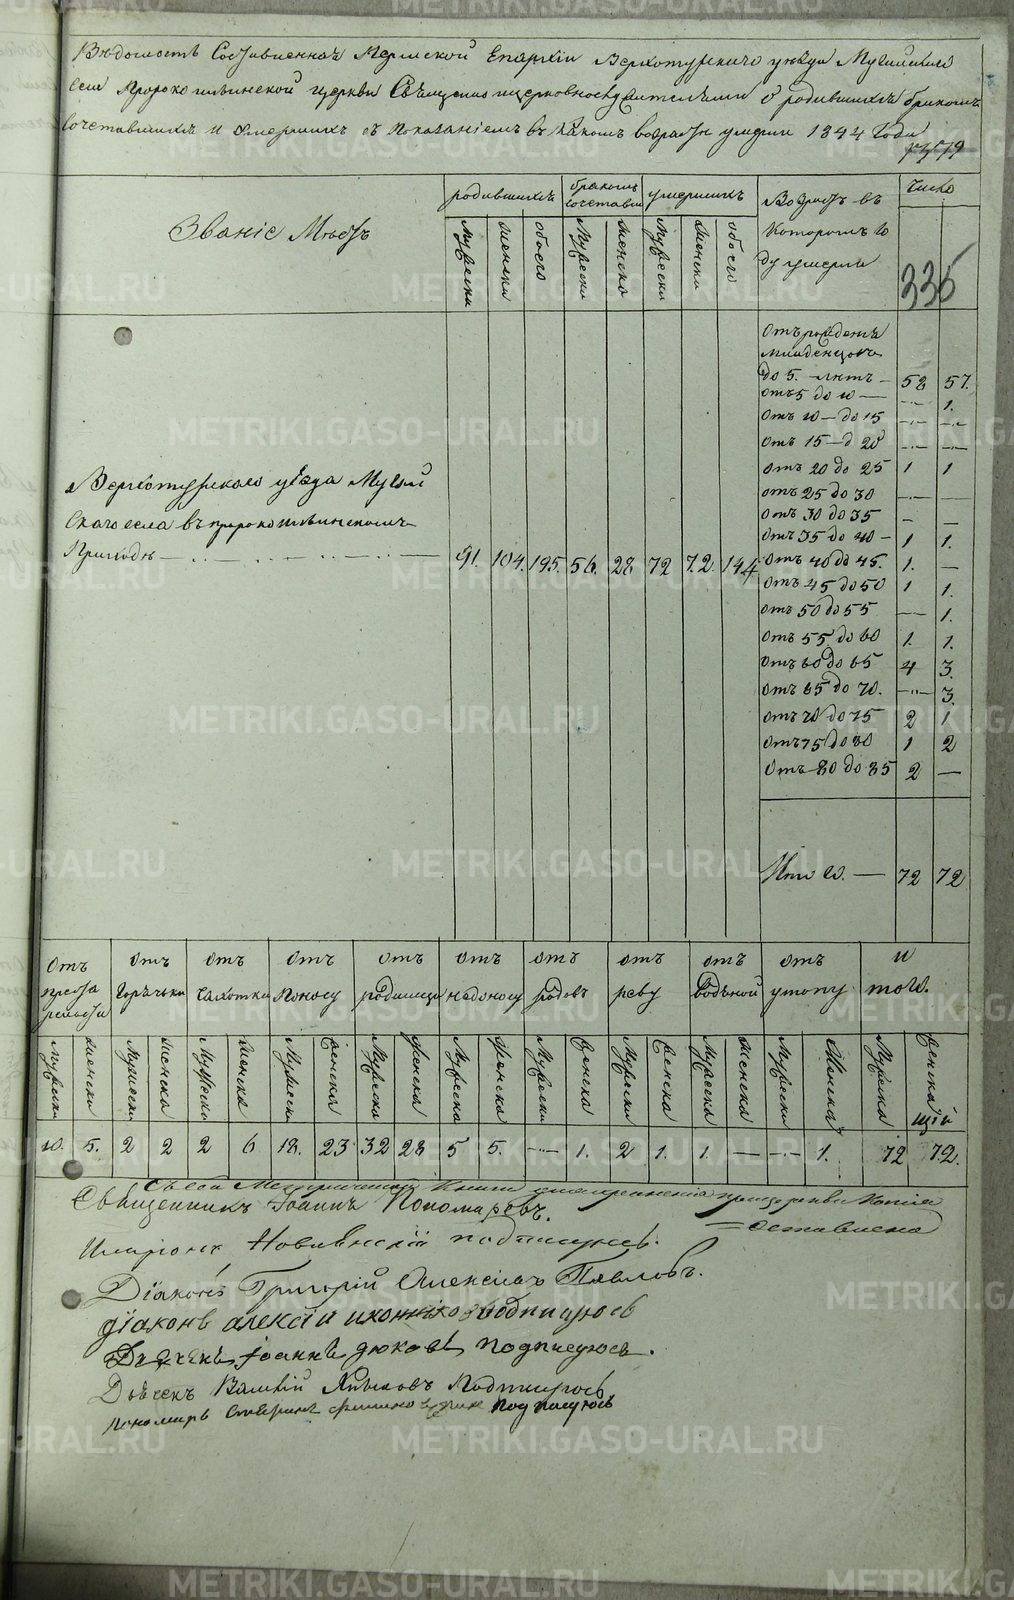 Вѣдомость Составленная Пермской Епархіи Верхотурскаго уѣзда Мугайскаго
села Пророкоильинской церкви Священноицерковнослужителями о родившихся бракомъ
сочетавшихся и умершихъ съ показаніемъ въ какомъ возрастѣ умерли 1844 Года
Званіе Мѣстъ
родившихся
бракомъ сочетавш
умершихъ
Возрастъ въ
которомъ го
ду умерли
Число
336
Мужеска
женска
обоего
Мужеска
женска
Мужеска
женска
обоего
Отъ рожденія
младенцовъ
до 5. лѣтъ — 58 57.
отъ 5 до 10 — — 1.
отъ 10 — до 15 — —
отъ 15 — д 20 — —
отъ 20 до 25 1 1
отъ 25 до 30 — —
отъ 30 до 35 — —
отъ 35 до 40 — 1 1.
отъ 40 до 45. 1. —
отъ 45 до 50 1 1.
отъ 50 до 55 — 1.
отъ 55 до 60 1. 1.
отъ 60 до 65 4 3.
отъ 65 до 70. — 3.
отъ 70 до 75 2 1.
отъ 75 до 80 1 2
отъ 80 до 85 2 —
Итого. — 72 72
Верхотурскаго уѣзда Мугай
скаго села въ пророкоильинскомъ
Приходѣ — 91. 104. 195. 56. 28 72 72. 144
отъ
отъ горячьки
отъ чахотки
отъ поносу
отъ родимца
отъ
отъ родовъ
отъ реву
отъ водяной
отъ утопу
и того.
Мужеска женска Мужеска женска Мужеска женска Мужеска женска Мужеска женска Мужеска женска Мужеска женска Мужеска женска Мужеска женска Мужеска женска Мужеска женска
10. 5. 2 2 2 6 18. 23 32 28 5 5. — 1. 2 1. 1. — — 1. 72 72.
Съ сей Метрической Книги при церкви Копія
оставлена
Священникъ Іоаннъ Пономаревъ.
подписуюсь.
Діаконъ Григорій Алексіевъ Павловъ.
діаконъ алексій подписуюсь
Дьячекъ іоаннъ дюковъ подписуюсь.
Дьячекъ Подписуюсь
пономарь подписуюсь
METRIKI.GASO-URAL.RU